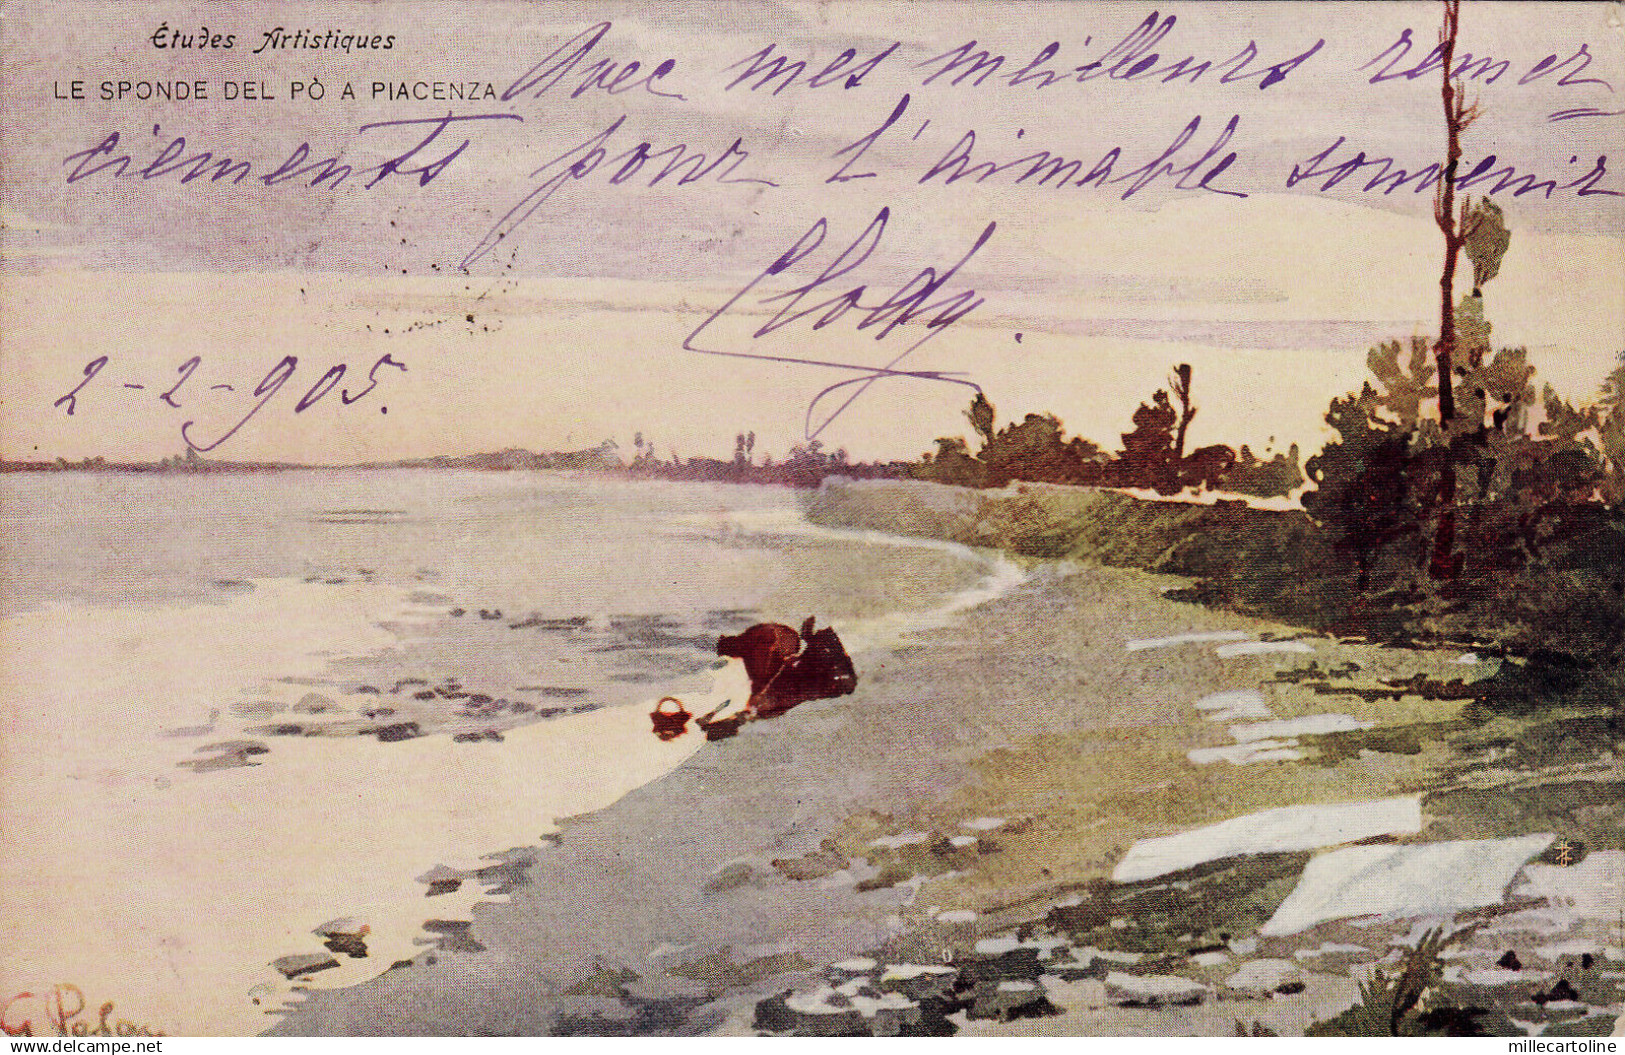 Études Artistiques
LE SPONDE DEL PÒ A PIACENZA
Avec mes meilleurs remer=
ciements pour l'aimable souvenir
Clody.
2-2-905.
delcampe.net
millecartoline